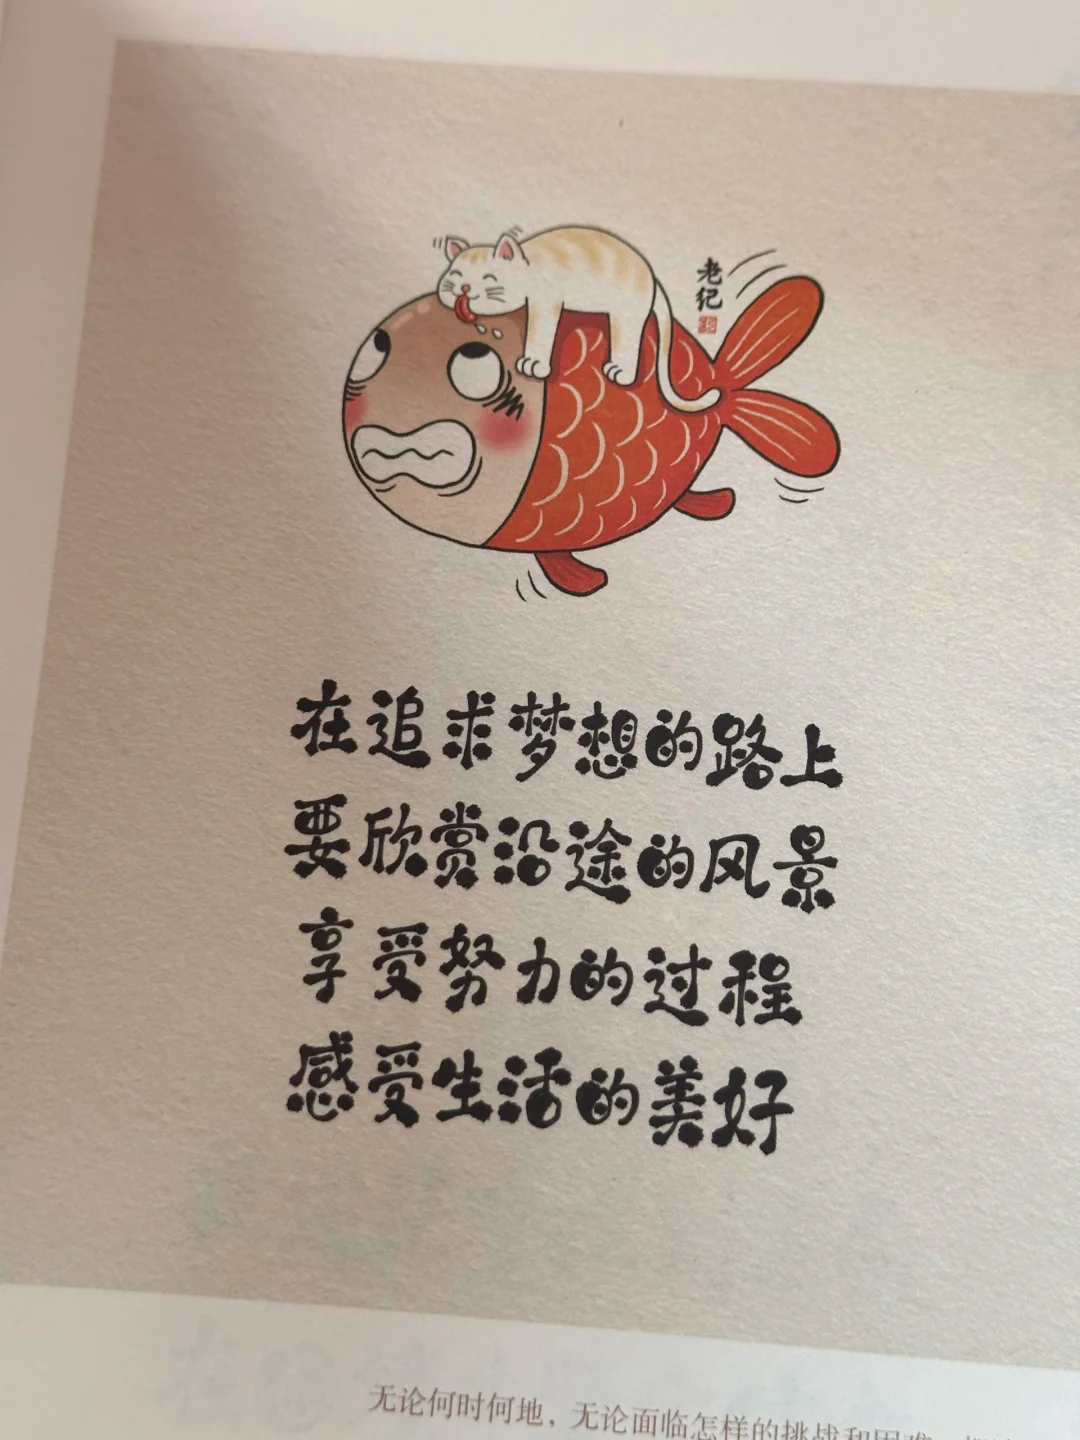 老纪
在追求梦想的路上
要欣赏沿途的风景
享受努力的过程
感受生活的美好
无论何时何地，无论面临怎样的挑战和困难